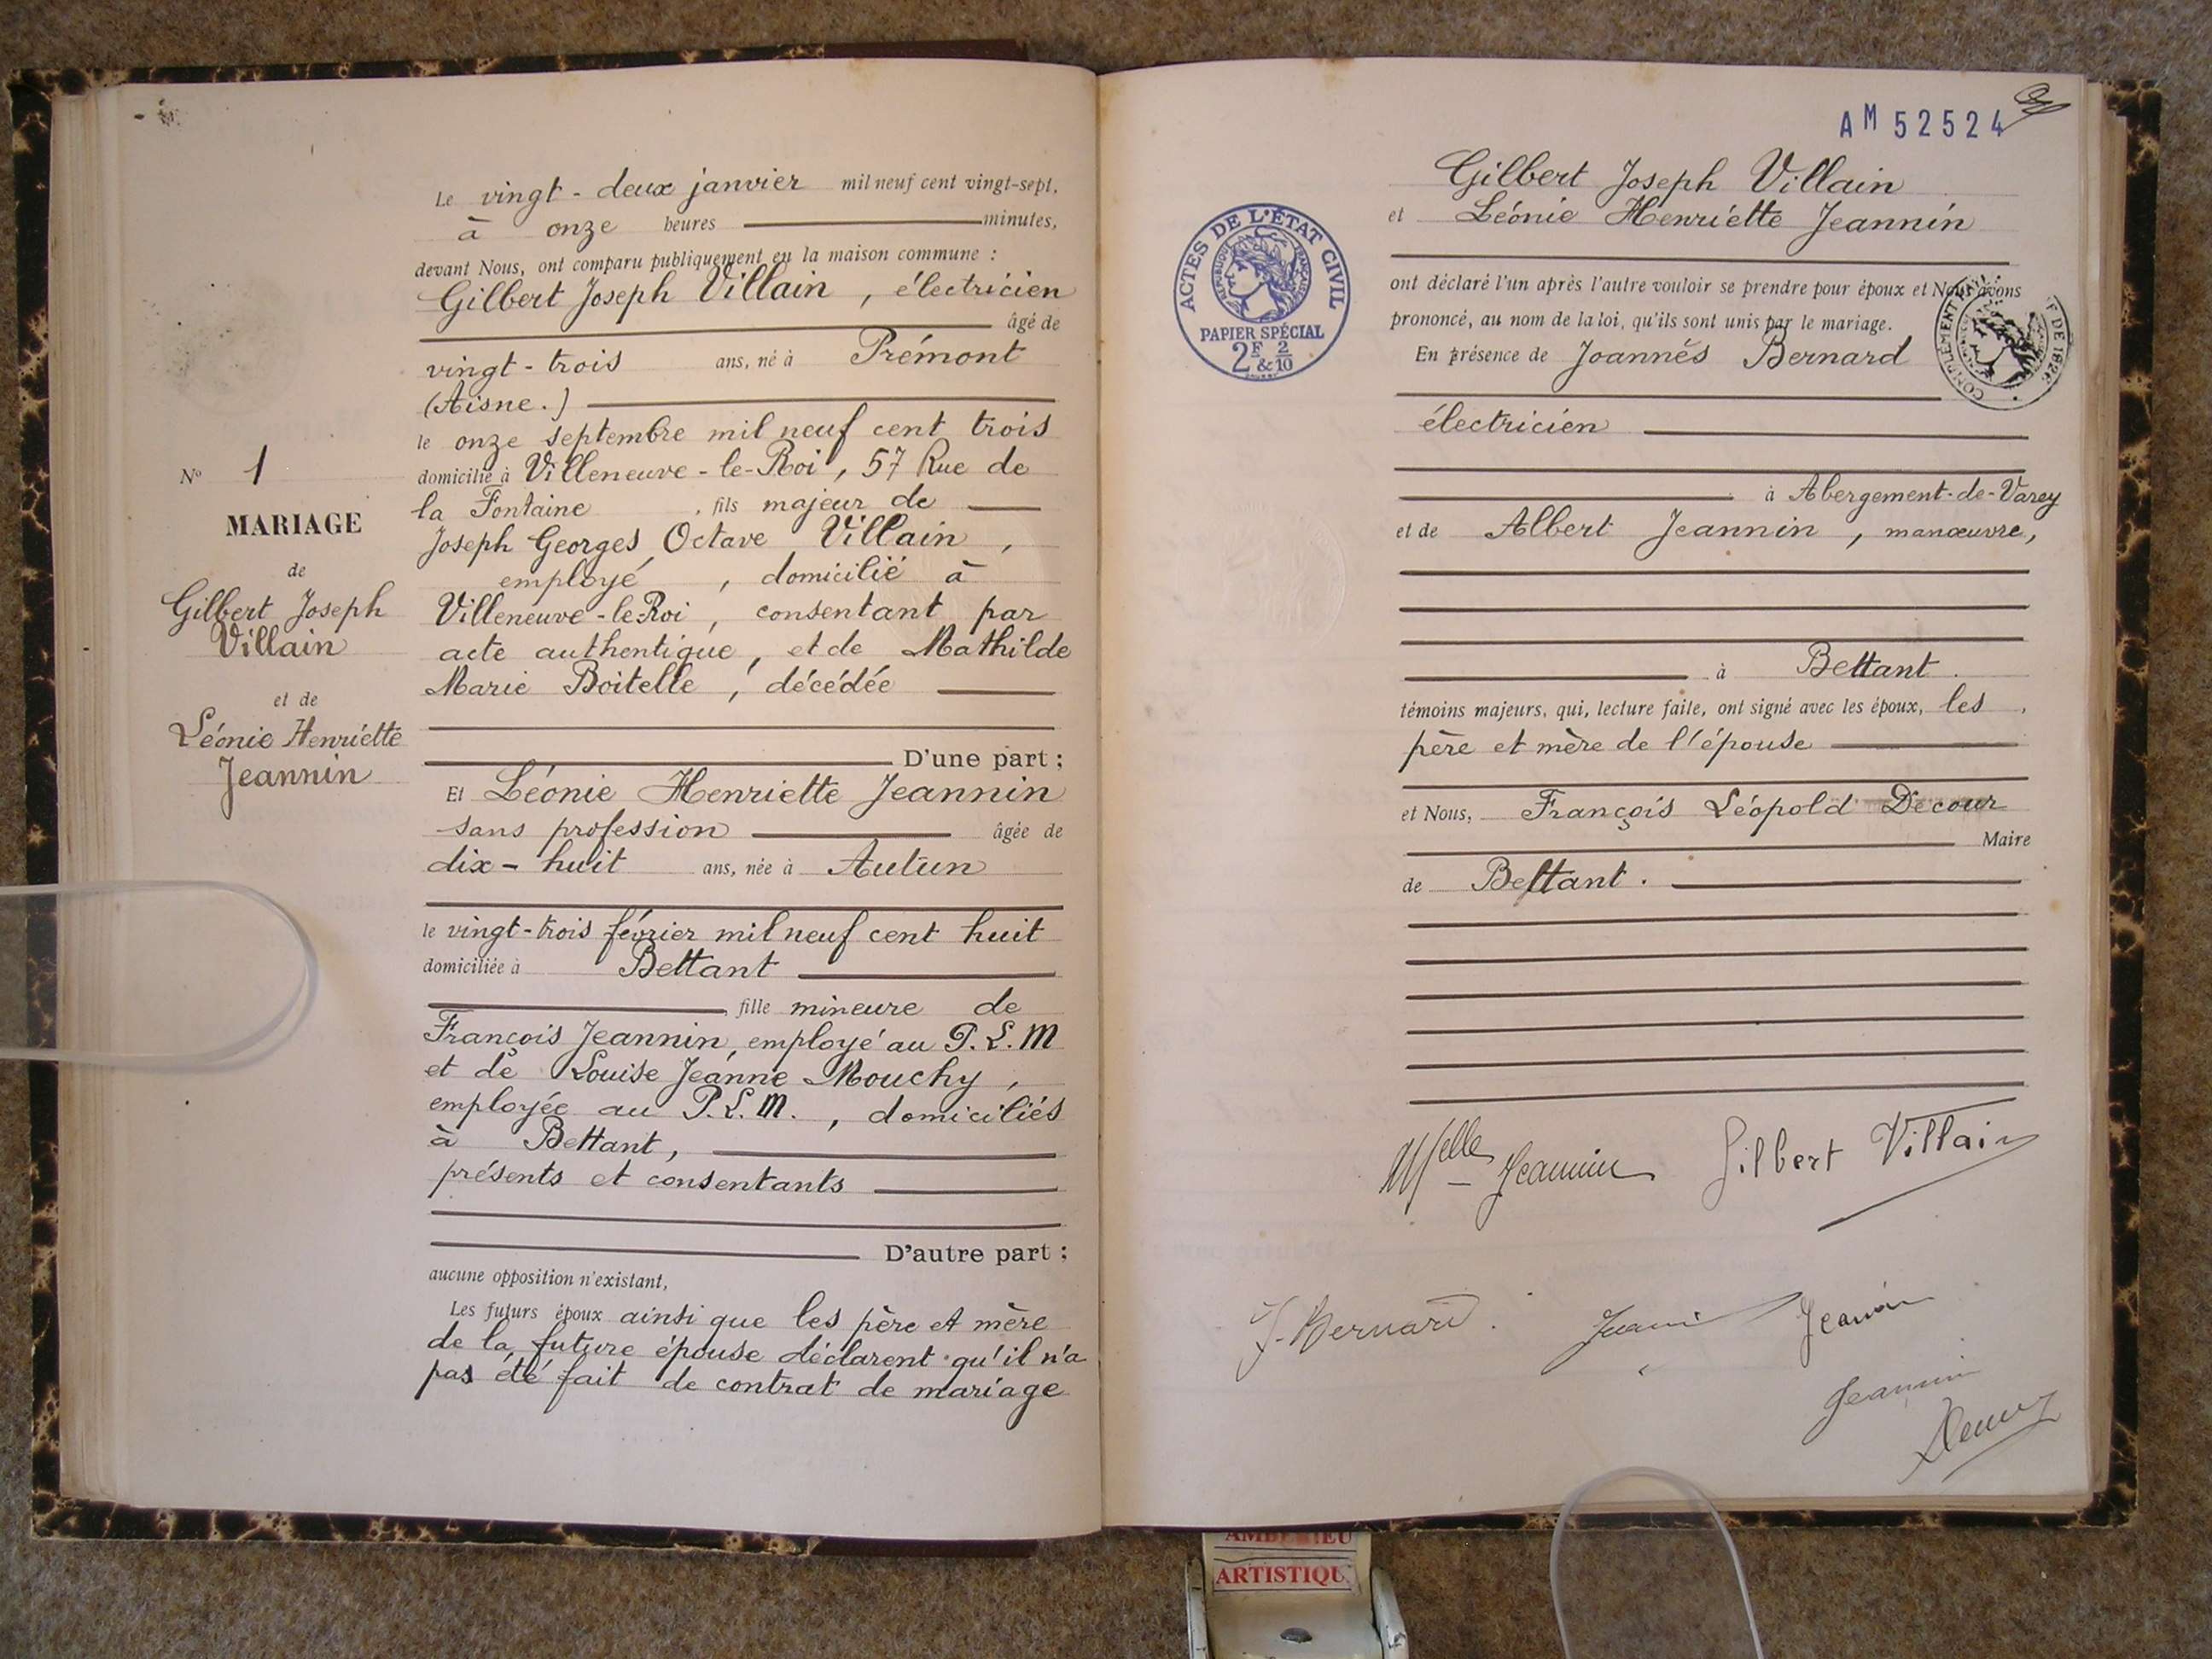 N° 1
MARIAGE
de
Gilbert Joseph
Villain
et de
Léonie Henriette
Jeannin
Le vingt-deux janvier mil neuf cent vingt-sept,
à onze heures minutes,
devant Nous, ont comparu publiquement en la maison commune :
Gilbert Joseph Villain, électricien
âgé de
vingt-trois ans, né à Prémont
(Aisne.)
le onze septembre mil neuf cent trois
domicilié à Villeneuve-le-Roi, 57 Rue de
la Fontaine, fils majeur de
Joseph Georges Octave Villain,
employé, domicilié à
Villeneuve-le-Roi, consentant par
acte authentique, et de Mathilde
Marie Boitelle, décédée
D'une part ;
Et Léonie Henriette Jeannin
sans profession âgée de
dix-huit ans, née à Autun
le vingt-trois février mil neuf cent huit
domiciliée à Bettant
, fille mineure de
François Jeannin, employé au P.L.M
et de Louise Jeanne Mouchy,
employée au P.L.M., domiciliés
à Bettant,
présents et consentants
D'autre part ;
aucune opposition n'existant,
Les futurs époux ainsi que les père et mère
de la future épouse déclarent qu'il n'a
pas été fait de contrat de mariage
AM 52524
Gilbert Joseph Villain
et Léonie Henriette Jeannin
ACTES DE L'ÉTAT CIVIL
RÉPUBLIQUE FRANÇAISE
PAPIER SPÉCIAL
2F & 2/10
ont déclaré l'un après l'autre vouloir se prendre pour époux et Nous avons
prononcé, au nom de la loi, qu'ils sont unis par le mariage.
En présence de Joannès Bernard
électricien
à Abergement-de-Varey
et de Albert Jeannin, manœuvre,
à Bettant.
témoins majeurs, qui, lecture faite, ont signé avec les époux, les
père et mère de l'épouse
et Nous, François Léopold Decour
Maire
de Bettant.
Melle Jeannin Gilbert Villain
J. Bernard. Jeannin
Jeannin
AMBERIEU
ARTISTIQU